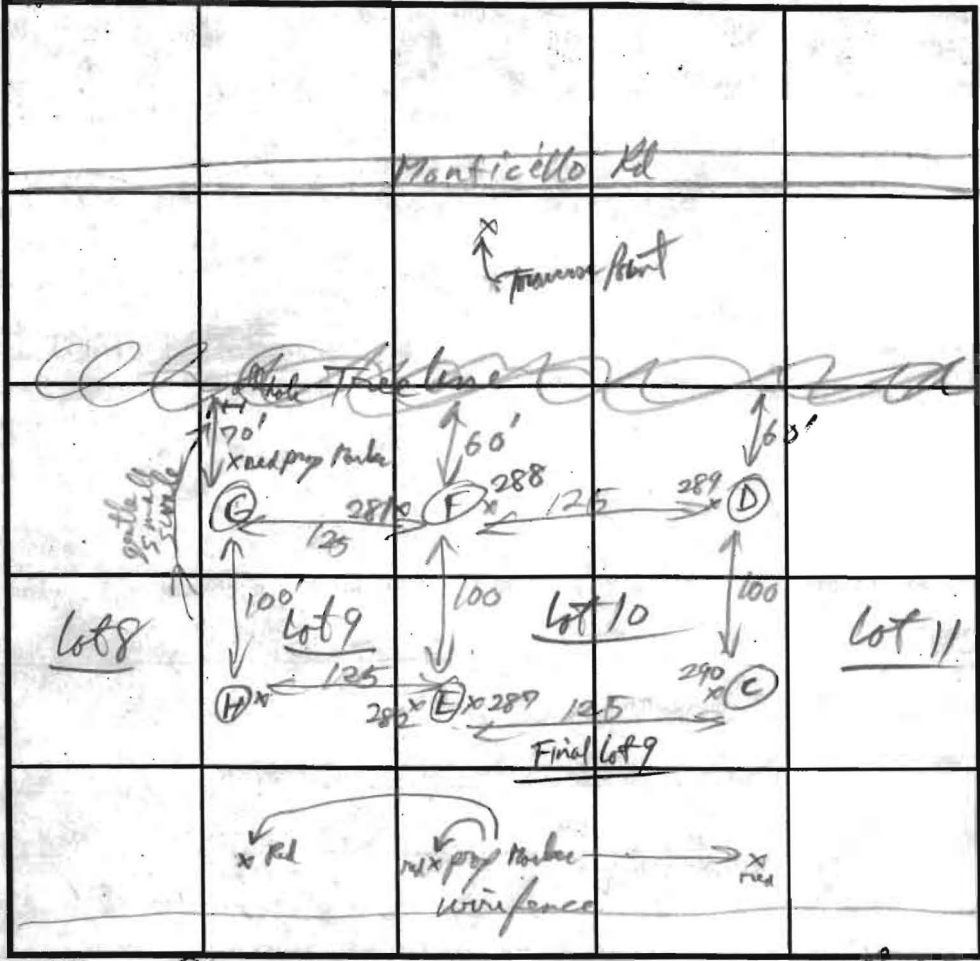 Monticello Rd
Point
hole Tree line
70'
60'
60'
x red prop Marker
gentle
small
swale
G
281x
F
288
x
125
289
x
D
125
100'
100
100
Lot 8
Lot 9
Lot 10
Lot 11
H x
125
282x
E
x 287
125
290
x
C
Final Lot 9
x Red
red x prop Marker
x
red
wire fence